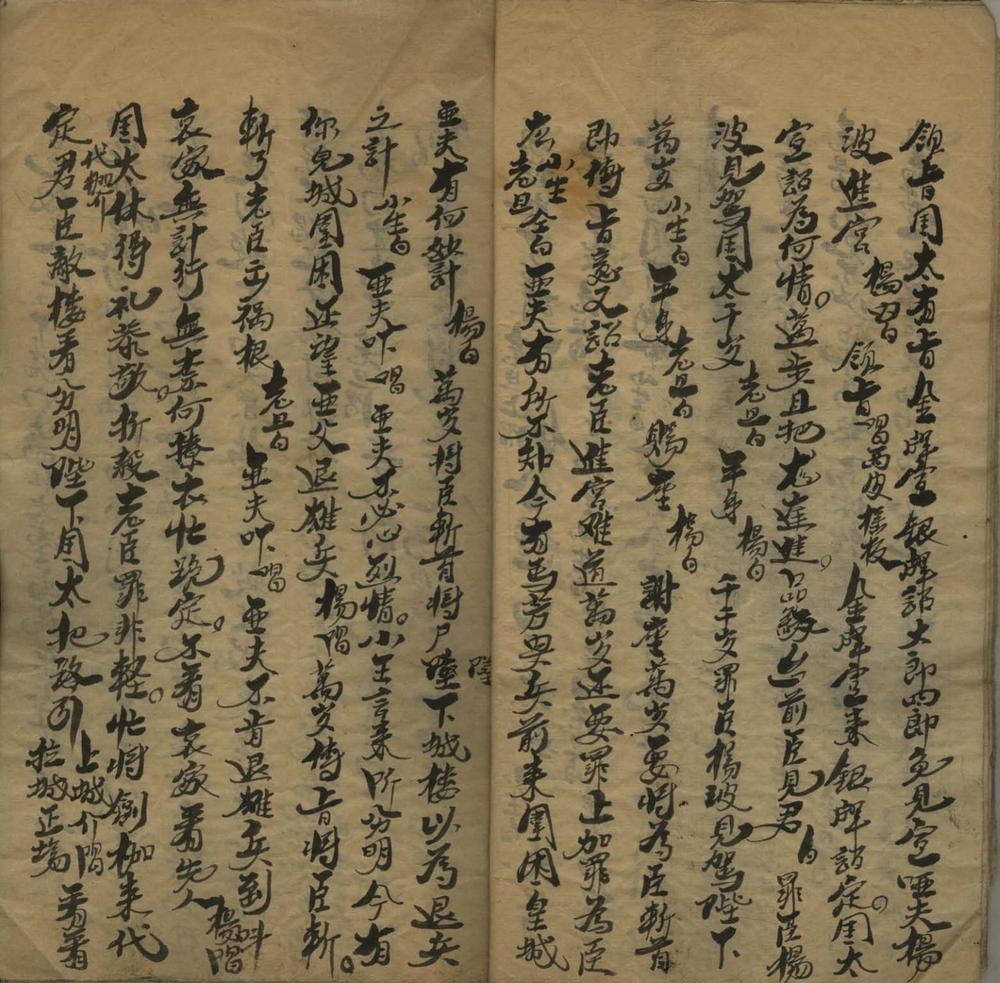 領旨国太有旨金牌宣銀牌詔大郎四郎免見宣啞夫楊
波進宮 楊白 領旨 唱西皮搖板 金牌宣來銀牌詔定。国太
宣詔為何情。邁步且把龙庭進。品級台前臣見君 白 罪臣楊
波見駕国太千岁 老旦白 平身 楊白 千千岁罪臣楊波見駕陛下
萬岁 小生白 平身 老旦白 賜座 楊白 謝座萬岁要將為臣斬首
即傳旨意又詔老臣進宮难道萬岁还要罪上加罪為臣
小生老旦仝白 亚夫有所不知今有馬芳與兵前来圍困皇城
亚夫有何妙計 楊白 萬岁將臣斬首將尸 下城楼以為退兵
之計 小生白 亚夫吓 唱 亚夫不必心烈情。小王言来听分明今有
你兒城圍困还望亚父退雄兵 楊唱 萬岁傳旨將臣斬。
斬了老臣去祸根 老旦白 亚夫吓 唱 亚夫不肯退雄兵到
哀家無計行無奈何撩衣忙跪定。不看哀家看先人 楊唱
国太休得礼恭敬。折殺老臣罪非輕。忙將 枷来代
代枷介 定君臣敵楼看分明陛下国太把路引 上城介唱 拉城正場 看看